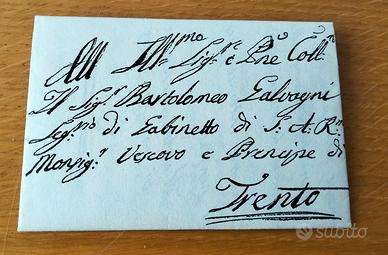 All Ill:mo Sig:r e Pne Coll:mo
Il Sig:r Bartolomeo Galvagni
Seg:rio di Gabinetto di S. A. R:ma
Monsig:r Vescovo e Prencipe di
Trento
subito